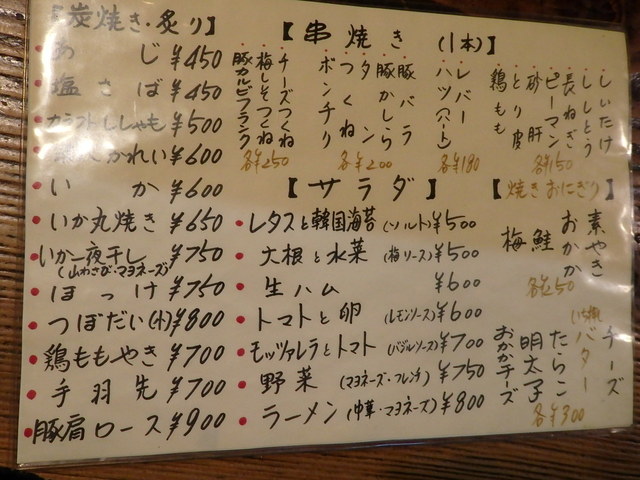 【炭焼き・炙り】
あじ ¥450
塩さば ¥450
カラフトししゃも ¥500
かれい ¥600
いか ¥600
いか丸焼き ¥650
いか一夜干し ¥750
(山わさび・マヨネーズ)
ほっけ ¥750
つぼだい(小) ¥800
鶏ももやき ¥700
手羽先 ¥700
豚肩ロース ¥900
【串焼き(1本)】
しいたけ
ししとう
長ねぎ
ピーマン
砂肝
とり皮
鶏もも
各¥150
レバー
ハツ(ハート)
各¥180
豚バラ
豚かしら
タン
つくね
ボンチリ
各¥200
チーズつくね
梅しそつくね
豚カルビフランク
各¥250
【サラダ】
レタスと韓国海苔(ソルト) ¥500
大根と水菜(梅ソース) ¥500
生ハム ¥600
トマトと卵(レモンソース) ¥600
モッツァレラとトマト(バジルソース) ¥700
野菜(マヨネーズ・フレンチ) ¥750
ラーメン(中華・マヨネーズ) ¥800
【焼きおにぎり】
素やき
おかか
鮭
梅
各¥250
チーズ
バター
たらこ
明太子
おかかチーズ
各¥300